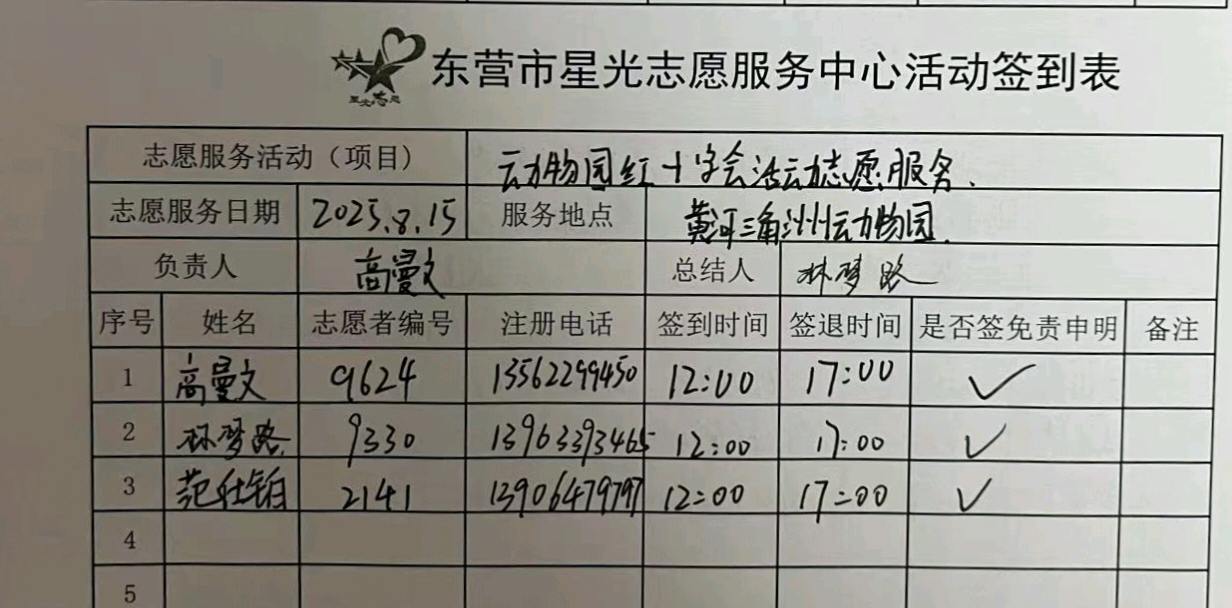 星光志愿
东营市星光志愿服务中心活动签到表
志愿服务活动（项目） 动物园红十字会活动志愿服务.
志愿服务日期 2025.8.15 服务地点 黄河三角洲动物园.
负责人 高曼文 总结人 林梦路
序号 姓名 志愿者编号 注册电话 签到时间 签退时间 是否签免责申明 备注
1 高曼文 9624 13562299450 12:00 17:00 ✓
2 林梦路 9330 13963393465 12:00 17:00 ✓
3 范仕铂 2141 13906479797 12:00 17:00 ✓
4
5